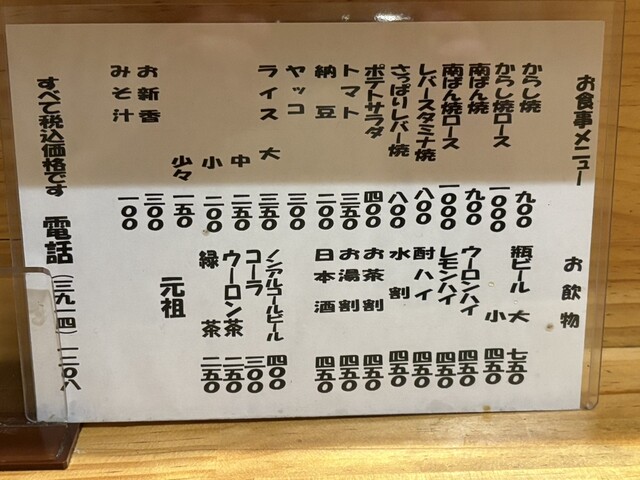 お食事メニュー
からし焼 九〇〇
からし焼ロース 一〇〇〇
南ばん焼 九〇〇
南ばん焼ロース 一〇〇〇
レバースタミナ焼 八〇〇
さっぱりレバー焼 八〇〇
ポテトサラダ 四〇〇
トマト 三五〇
納豆 二〇〇
ヤッコ 三〇〇
ライス 大 三五〇
中 二五〇
小 二〇〇
少々 一五〇
お新香 三〇〇
みそ汁 一〇〇
お飲物
瓶ビール 大 七五〇
小 四五〇
ウーロンハイ 四五〇
レモンハイ 四五〇
酎ハイ 四五〇
水割 四五〇
お茶割 四五〇
お湯割 四五〇
日本酒 四五〇
ノンアルコールビール 四〇〇
コーラ 三〇〇
ウーロン茶 二五〇
緑茶 二五〇
元祖
すべて税込価格です 電話（三九一四）一二〇八